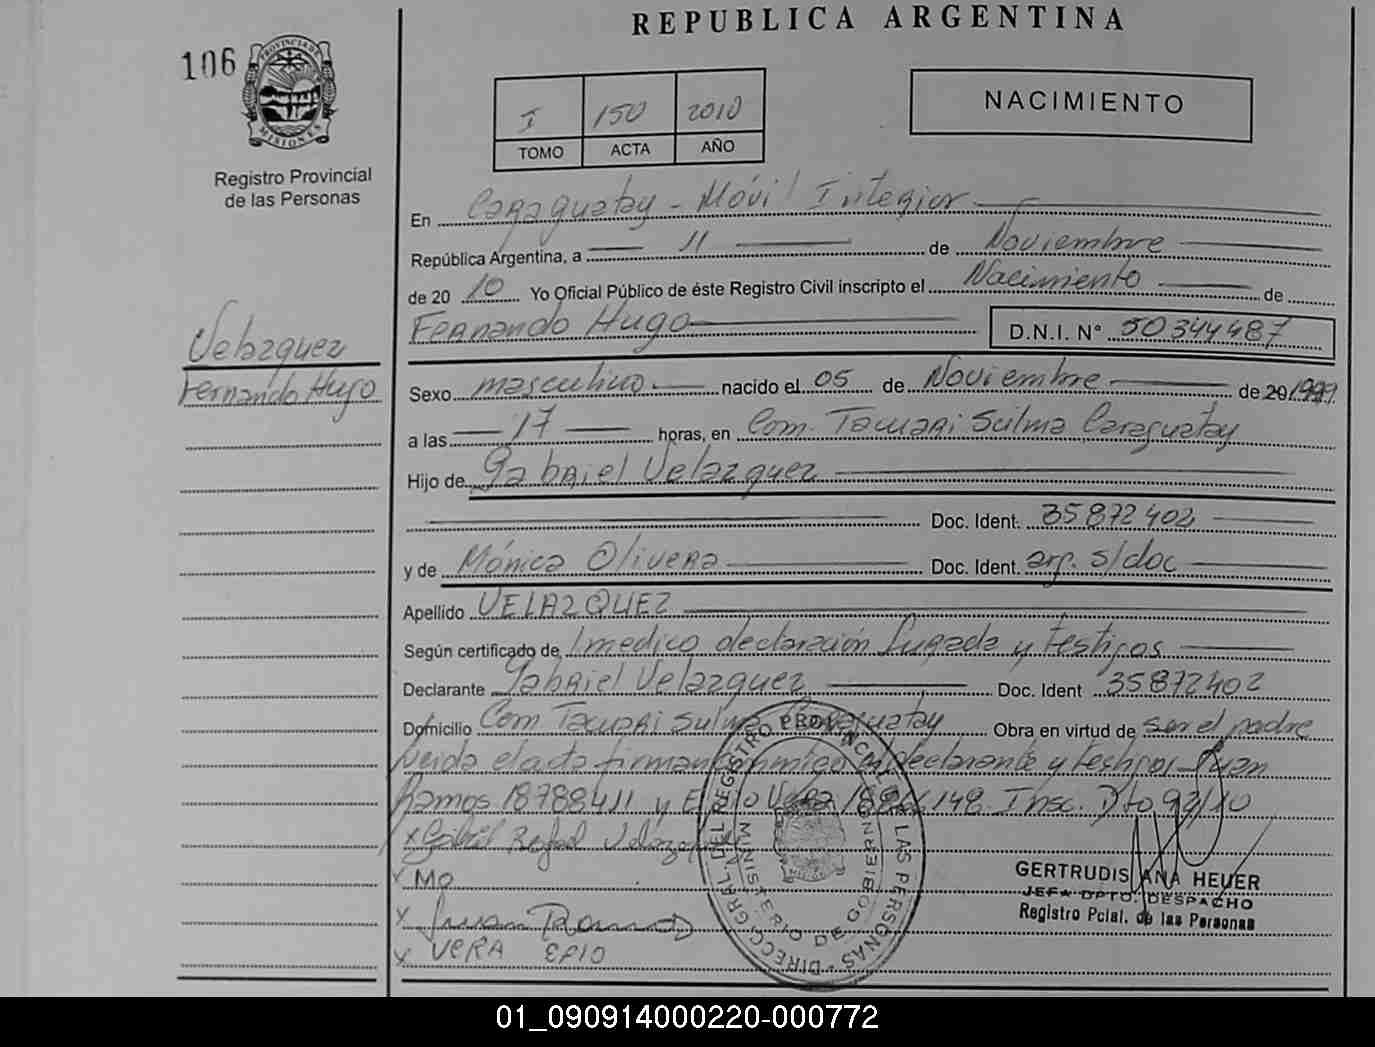 REPUBLICA ARGENTINA
106
PROVINCIA DE MISIONES
Registro Provincial
de las Personas
I 150 2010
TOMO ACTA AÑO
NACIMIENTO
En Caraguatay - Móvil Interior
República Argentina, a 11 de Noviembre
de 20 10 Yo Oficial Público de éste Registro Civil inscripto el Nacimiento de
Fernando Hugo D.N.I. N° 50344487
Velazquez
Fernando Hugo
Sexo masculino nacido el 05 de Noviembre de 20 1999
a las 17 horas, en Com. Tacuari Sulma Caraguatay
Hijo de Gabriel Velazquez
Doc. Ident. 35872402
y de Mónica Olivera Doc. Ident. arg. s/doc
Apellido VELAZQUEZ
Según certificado de medico declaración Jurada y testigos
Declarante Gabriel Velazquez Doc. Ident 35872402
Domicilio Com Tacuari Sulma Caraguatay Obra en virtud de ser el padre
Leida el acta firman conmigo el declarante y testigos Juan
Ramos 18788411 y Vera Insc. Dto 92/10
x Gabriel Rafael Velazquez
x Mo
x Juan Ramos
x VERA EPIO
DIRECC. GRAL. DEL REGISTRO PROVINCIAL DE LAS PERSONAS
MINISTERIO DE GOBIERNO
GERTRUDIS ANA HEUER
JEFA DPTO. DESPACHO
Registro Pcial. de las Personas
01_090914000220-000772